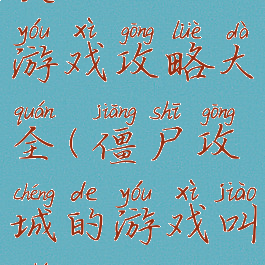 yóu xì gōng lüè dà
游戏攻略大
quán jiāng shī gōng
全(僵尸攻
chéng de yóu xì jiào
城的游戏叫